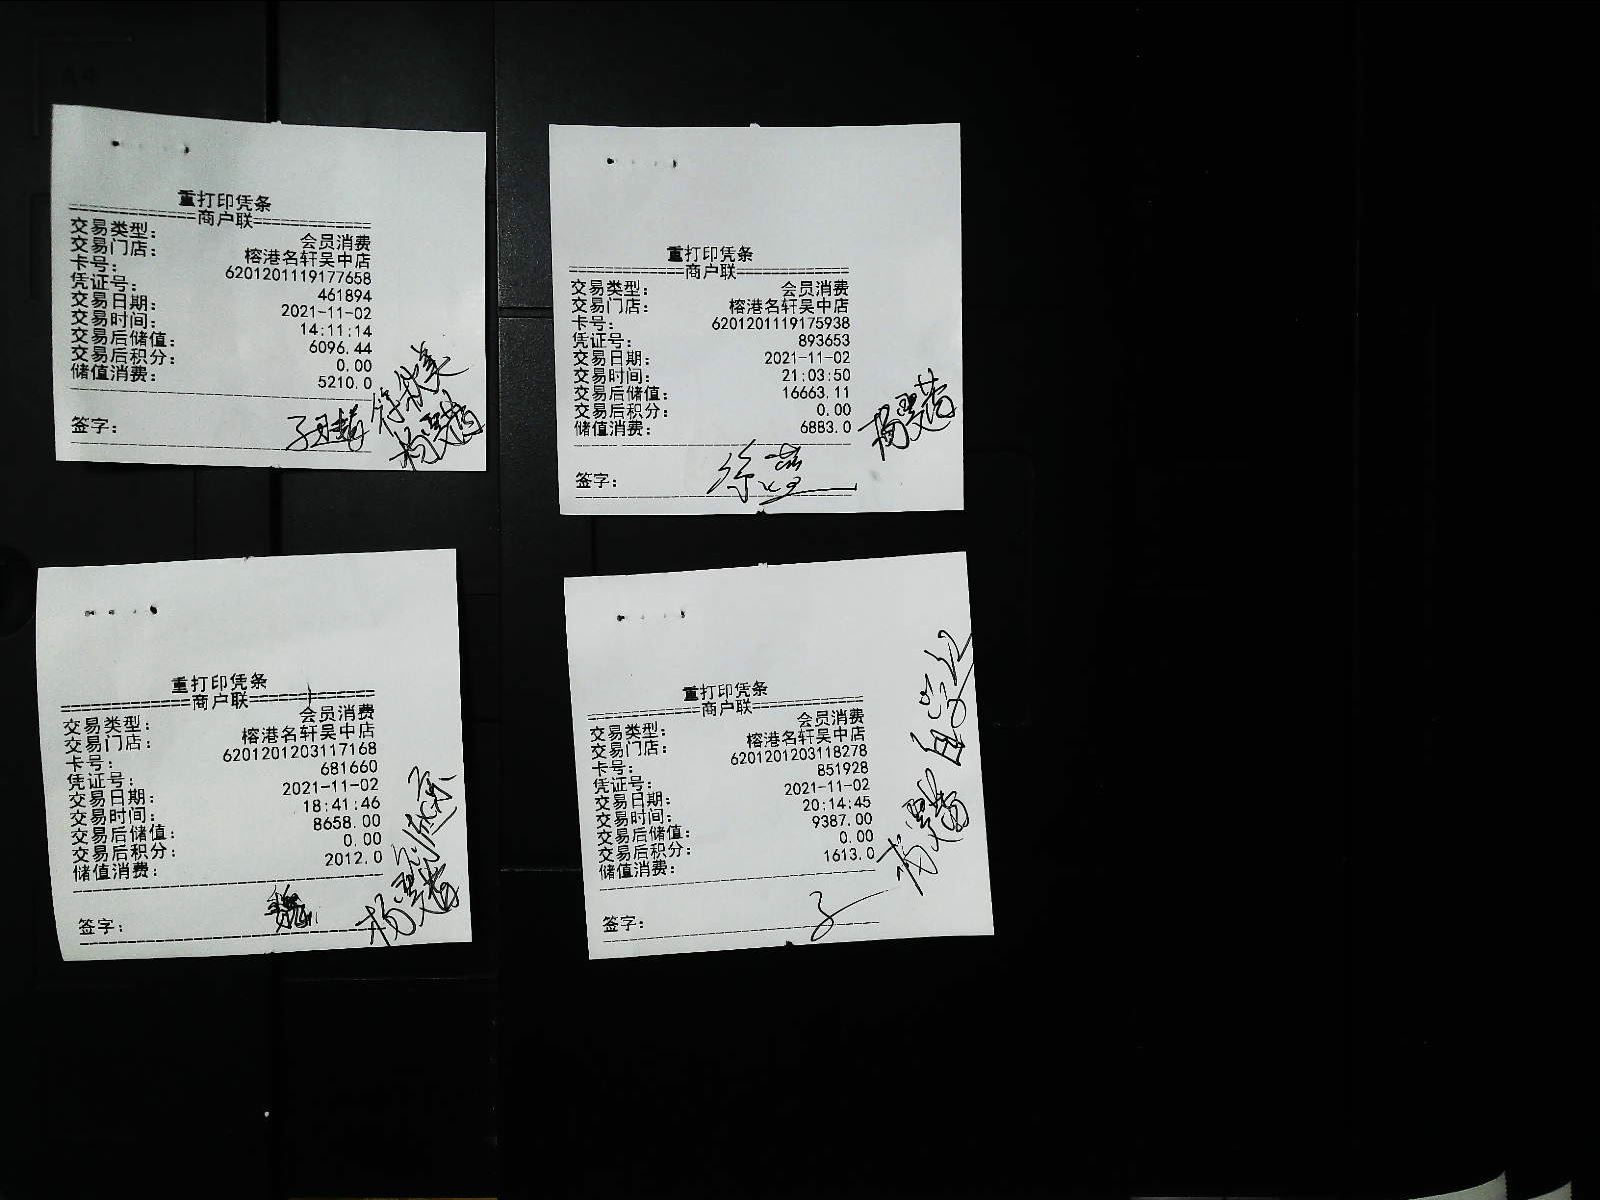 重打印凭条
============商户联============
交易类型: 会员消费
交易门店: 榕港名轩吴中店
卡号: 6201201119177658
凭证号: 461894
交易日期: 2021-11-02
交易时间: 14:11:14
交易后储值: 6096.44
交易后积分: 0.00
储值消费: 5210.0
签字:
重打印凭条
============商户联============
交易类型: 会员消费
交易门店: 榕港名轩吴中店
卡号: 6201201119175938
凭证号: 893653
交易日期: 2021-11-02
交易时间: 21:03:50
交易后储值: 16663.11
交易后积分: 0.00
储值消费: 6883.0
签字:
重打印凭条
============商户联============
交易类型: 会员消费
交易门店: 榕港名轩吴中店
卡号: 6201201203117168
凭证号: 681660
交易日期: 2021-11-02
交易时间: 18:41:46
交易后储值: 8658.00
交易后积分: 0.00
储值消费: 2012.0
签字:
重打印凭条
============商户联============
交易类型: 会员消费
交易门店: 榕港名轩吴中店
卡号: 6201201203118278
凭证号: 851928
交易日期: 2021-11-02
交易时间: 20:14:45
交易后储值: 9387.00
交易后积分: 0.00
储值消费: 1613.0
签字: